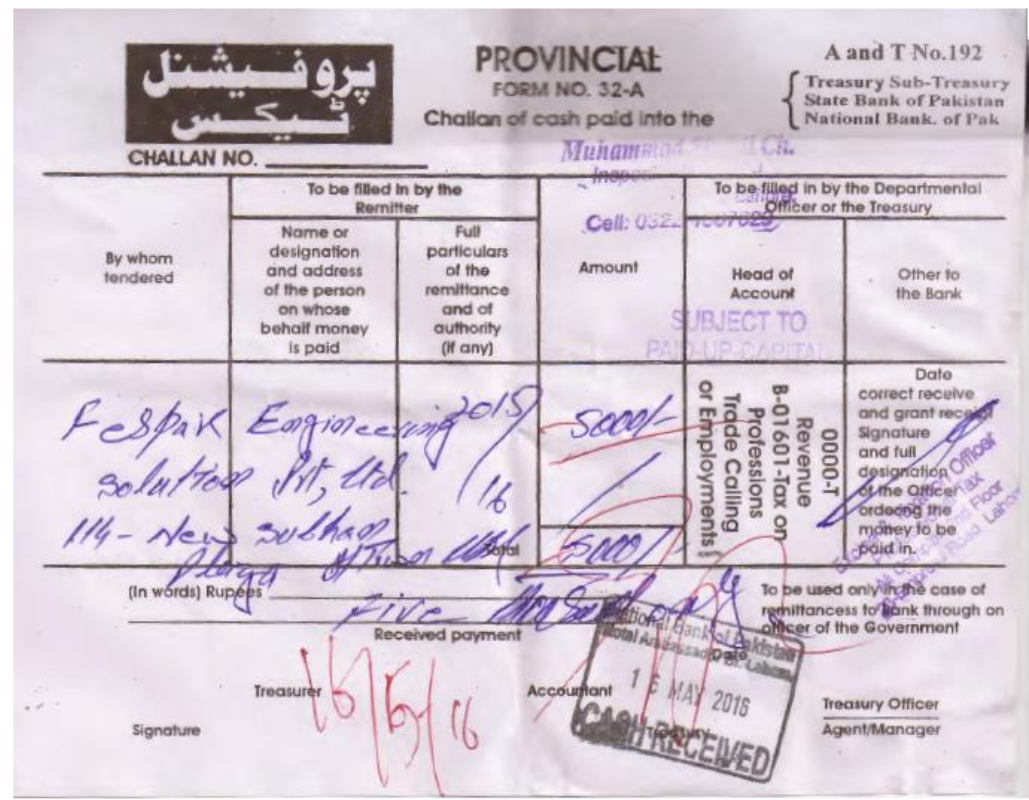 پروفیشنل
ٹیکس
PROVINCIAL
FORM NO. 32-A
Challan of cash paid into the
A and T No.192
Treasury Sub-Treasury
State Bank of Pakistan
National Bank. of Pak
CHALLAN NO.
Muhammad Ch.
Cell:
To be filled in by the
Remitter
To be filled in by the Departmental
Officer or the Treasury
By whom
tendered
Name or
designation
and address
of the person
on whose
behalf money
is paid
Full
particulars
of the
remittance
and of
authority
(if any)
Amount
Head of
Account
Other to
the Bank
SUBJECT TO
PAID-UP-CAPITAL
Fespak Engineering
Solution Pvt, Ltd.
114- New
Plaza
2015/
/16
5000/-
Total
5000/-
0000-T
Revenue
B-01601-Tax on
Professions
Trade Calling
or Employments
Date
correct receive
and grant receipt
Signature
and full
designation
of the Officer
ordeing the
money to be
paid in.
(In words) Rupees
Five thousand only
To be used only in the case of
remittancess to Bank through on
officer of the Government
Received payment
National Bank of Pakistan
Date
16 MAY 2016
CASH RECEIVED
Treasurer
16/5/16
Accountant
Treasury Officer
Signature
Agent/Manager